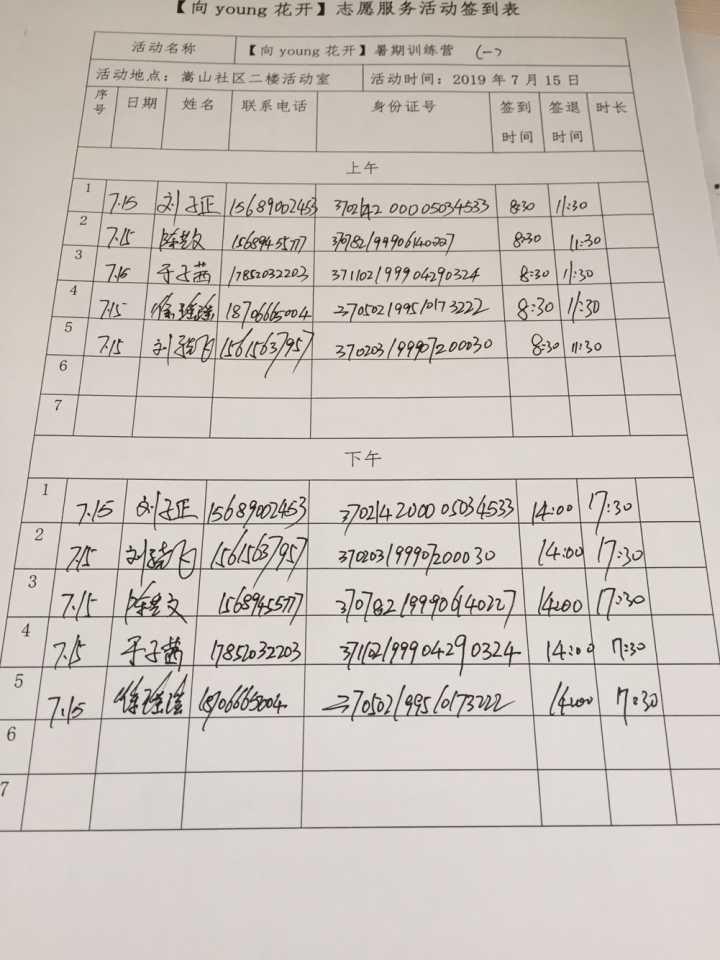 【向 young 花开】志愿服务活动签到表
活动名称 【向 young 花开】暑期训练营 (一)
活动地点：嵩山社区二楼活动室 活动时间：2019 年 7 月 15 日
序号 日期 姓名 联系电话 身份证号 签到时间 签退时间 时长
上午
1 7.15 刘子正 15689002453 370214200005034533 8:30 11:30
2 7.15 陈昱文 15689455777 370782199906140227 8:30 11:30
3 7.15 于子茜 17852032203 371102199904290324 8:30 11:30
4 7.15 徐瑶瑶 18706665004 370502199510173222 8:30 11:30
5 7.15 刘 飞 15615637957 370203199907200030 8:30 11:30
6
7
下午
1 7.15 刘子正 15689002453 370214200005034533 14:00 17:30
2 7.15 刘 飞 15615637957 370203199907200030 14:00 17:30
3 7.15 陈昱文 15689455777 370782199906140227 14:00 17:30
4 7.15 于子茜 17852032203 371102199904290324 14:00 17:30
5 7.15 徐瑶瑶 18706665004 370502199510173222 14:00 17:30
6
7